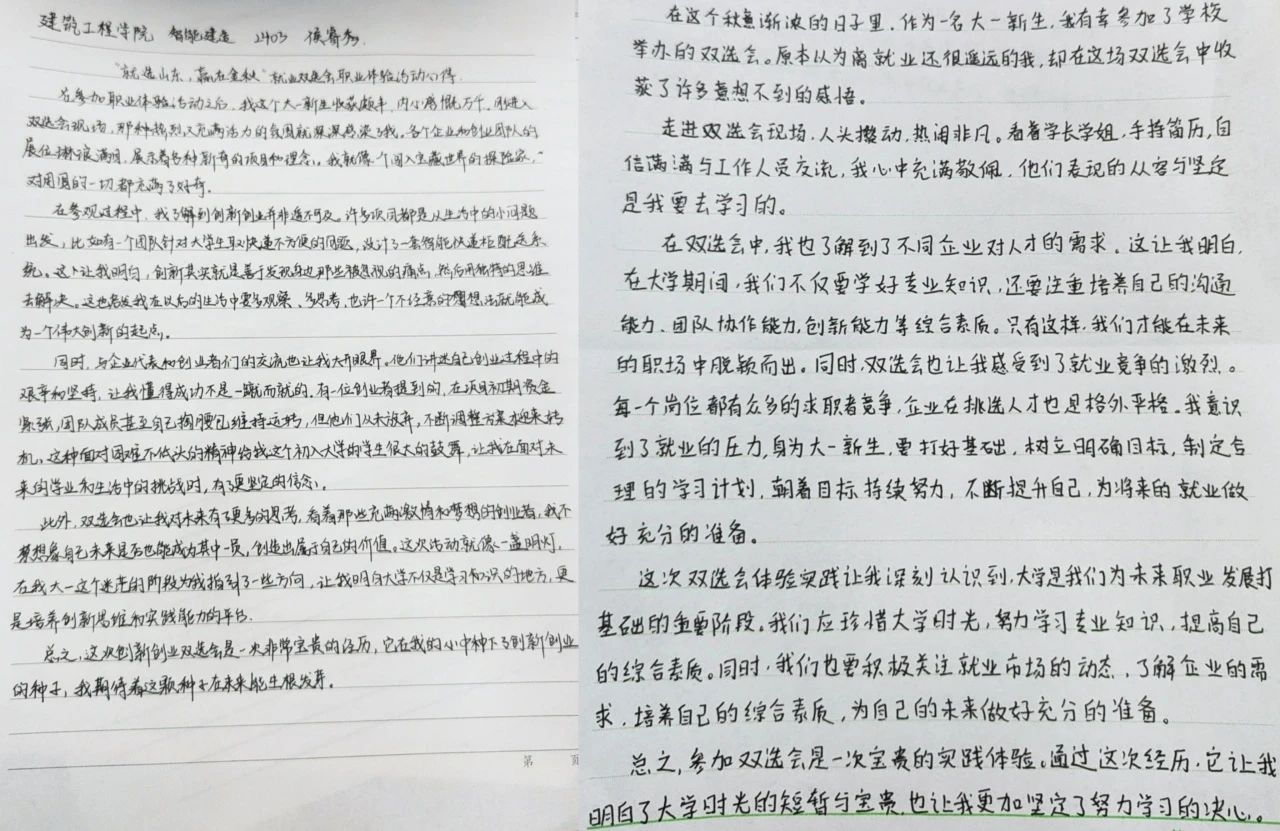 建筑工程学院 智能建造 2403 侯睿秀.
“就选山东，赢在金秋”就业双选会职业体验活动心得.
在参加职业体验活动之后，我这个大一新生收获颇丰，内心感慨万千。刚进入
双选会现场，那种热烈又充满活力的氛围就深深感染了我。各个企业和创业团队的
展位琳琅满目，展示着各种新奇的项目和理念。我就像个闯入宝藏世界的探险家，
对周围的一切都充满了好奇。
在参观过程中，我了解到创新创业并非遥不可及。许多项目都是从生活中的小问题
出发，比如有一个团队针对大学生取快递不方便的问题，设计了一套智能快递柜配送系
统。这让我明白，创新其实就是善于发现身边那些被忽视的痛点，然后用独特的思维
去解决。这也启发我在以后的生活中要多观察、多思考，也许一个不经意的奇想法就能成
为一个伟大创新的起点。
同时，与企业代表和创业者们的交流也让我大开眼界。他们讲述自己创业过程中的
艰辛和坚持，让我懂得成功不是一蹴而就的。有一位创业者提到的，在项目初期资金
紧张，团队成员甚至自己掏腰包维持运转，但他们从未放弃，不断调整方案迎来转
机。这种面对困难不低头的精神给我这个初入大学的学生很大的鼓舞，让我在面对未
来的学业和生活中的挑战时，有了更坚定的信念。
此外，双选会也让我对未来有了更多的思考，看着那些充满激情和梦想的创业者，我不
禁想象自己未来是否也能成为其中一员，创造出属于自己的价值。这次活动就像一盏明灯，
在我大一这个迷茫的阶段为我指引了一些方向，让我明白大学不仅是学习知识的地方，更
是培养创新思维和实践能力的平台.
总之，这次创新创业双选会是一次非常宝贵的经历，它在我的心中种下了创新创业
的种子，我期待着这颗种子在未来能生根发芽。
第 页
在这个秋意渐浓的日子里，作为一名大一新生，我有幸参加了学校
举办的双选会。原本认为离就业还很遥远的我，却在这场双选会中收
获了许多意想不到的感悟。
走进双选会现场，人头攒动，热闹非凡。看着学长学姐，手持简历，自
信满满与工作人员交流，我心中充满敬佩，他们表现的从容与坚定
是我要去学习的。
在双选会中，我也了解到了不同企业对人才的需求。这让我明白，
在大学期间，我们不仅要学好专业知识，还要注重培养自己的沟通
能力、团队协作能力，创新能力等综合素质。只有这样，我们才能在未来
的职场中脱颖而出。同时，双选会也让我感受到了就业竞争的激烈。
每一个岗位都有众多的求职者竞争，企业在挑选人才也是格外严格。我意识
到了就业的压力，身为大一新生，要打好基础，树立明确目标，制定合
理的学习计划，朝着目标持续努力，不断提升自己，为将来的就业做
好充分的准备。
这次双选会体验实践让我深刻认识到，大学是我们为未来职业发展打
基础的重要阶段。我们应珍惜大学时光，努力学习专业知识，提高自己
的综合素质。同时，我们也要积极关注就业市场的动态，了解企业的需
求，培养自己的综合素质，为自己的未来做好充分的准备。
总之，参加双选会是一次宝贵的实践体验。通过这次经历，它让我
明白了大学时光的短暂与宝贵，也让我更加坚定了努力学习的决心。